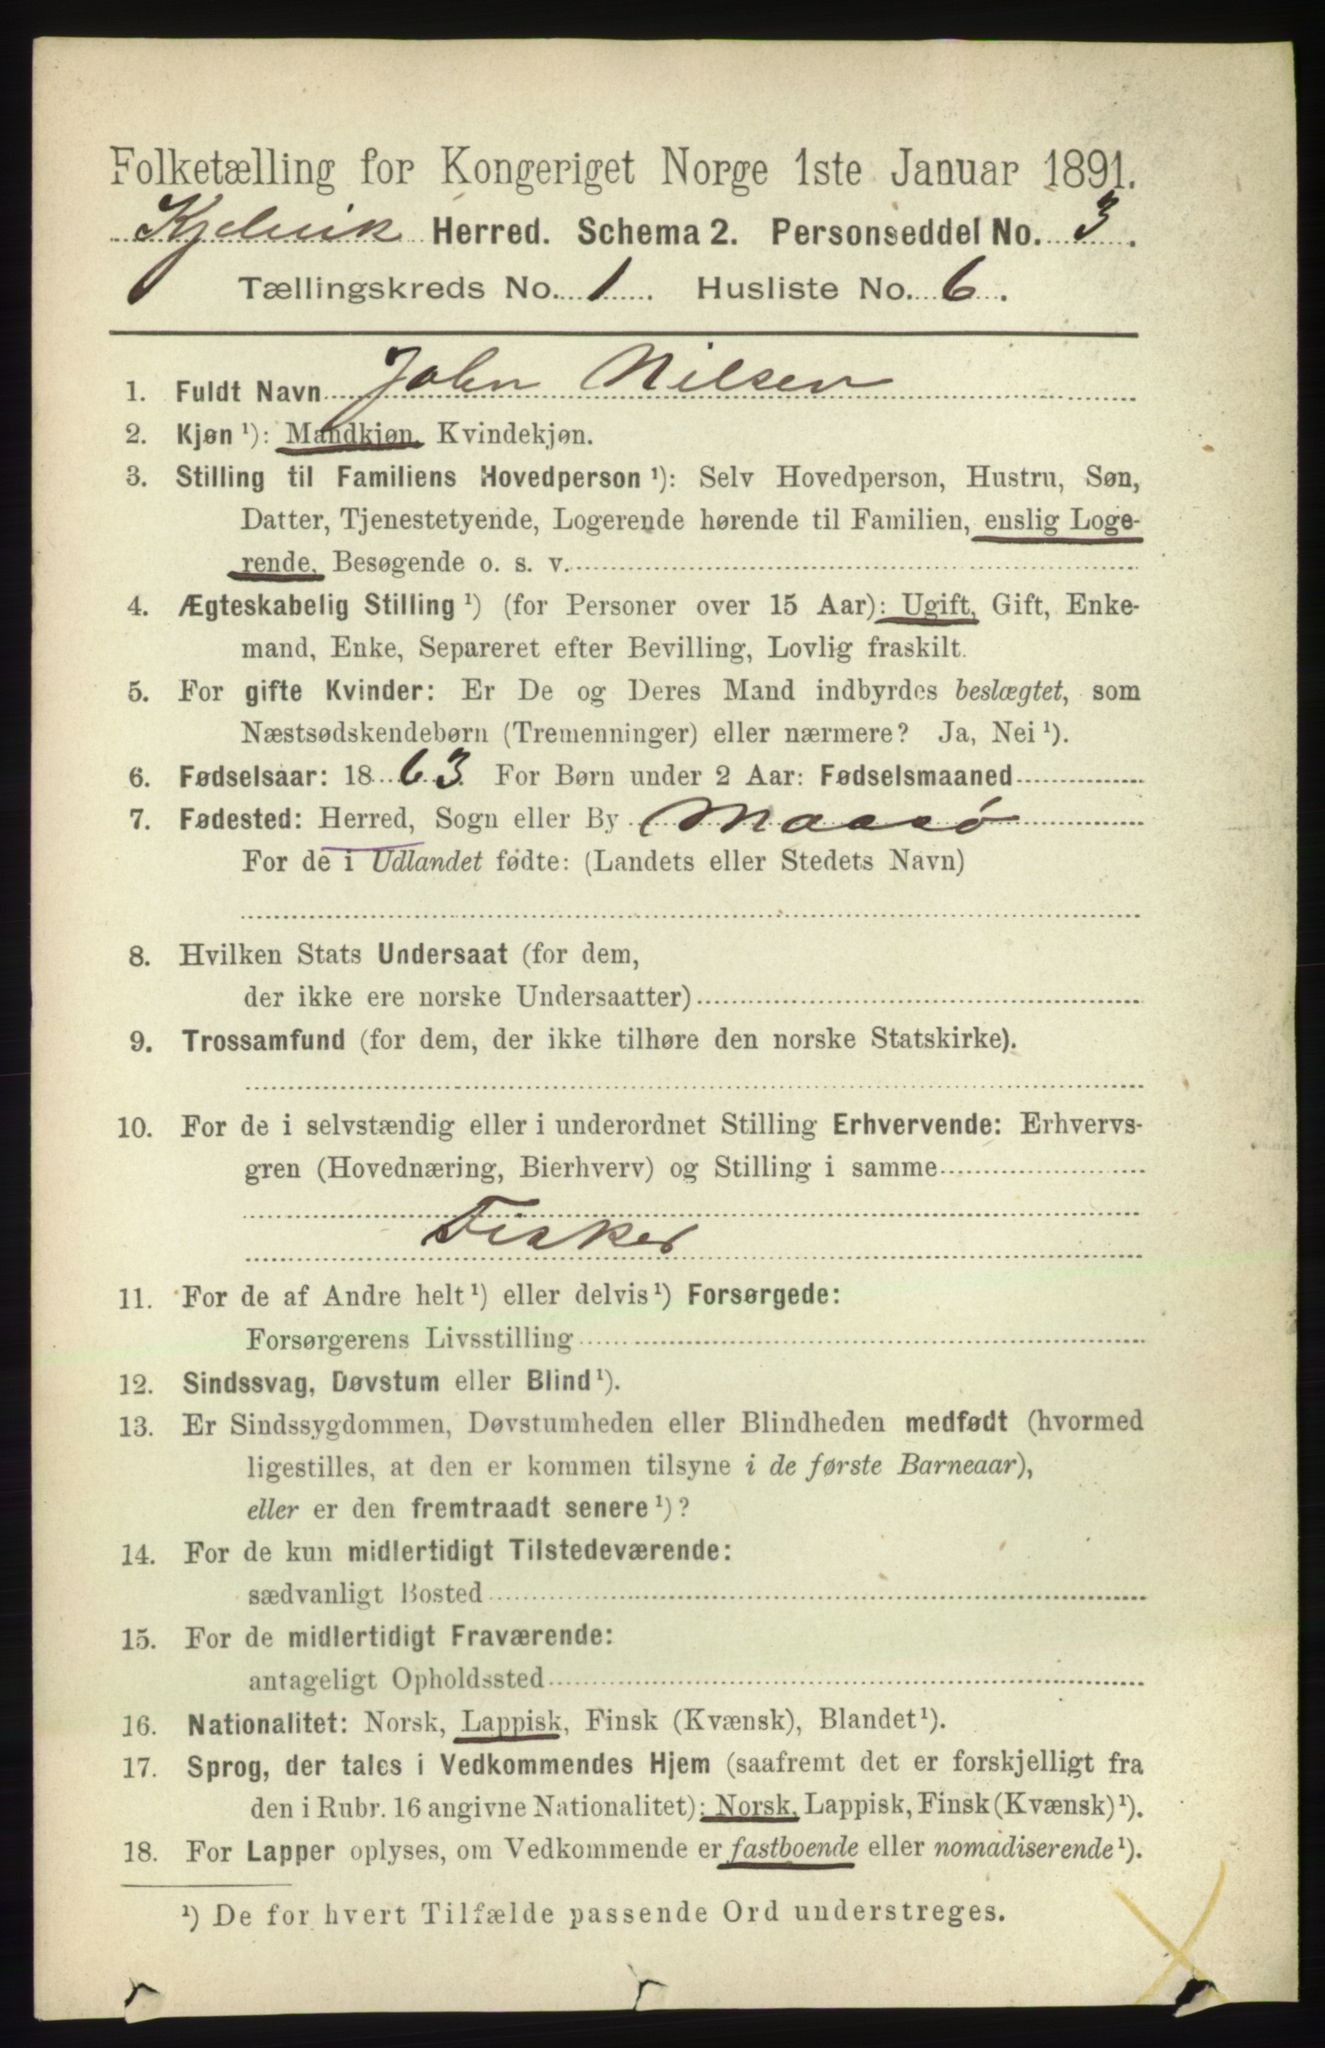 Folketælling for Kongeriget Norge 1ste Januar 1891.
Kjelvik Herred. Schema 2. Personseddel No. 3.
Tællingskreds No. 1 Husliste No. 6.
1. Fuldt Navn John Nilsen
2. Kjøn ¹): Mandkjøn, Kvindekjøn.
3. Stilling til Familiens Hovedperson ¹): Selv Hovedperson, Hustru, Søn,
Datter, Tjenestetyende, Logerende hørende til Familien, enslig Loge-
rende, Besøgende o. s. v.
4. Ægteskabelig Stilling ¹) (for Personer over 15 Aar): Ugift, Gift, Enke-
mand, Enke, Separeret efter Bevilling, Lovlig fraskilt.
5. For gifte Kvinder: Er De og Deres Mand indbyrdes beslægtet, som
Næstsødskendebørn (Tremenninger) eller nærmere? Ja, Nei ¹).
6. Fødselsaar: 1863. For Børn under 2 Aar: Fødselsmaaned
7. Fødested: Herred, Sogn eller By Maasø
For de i Udlandet fødte: (Landets eller Stedets Navn)
8. Hvilken Stats Undersaat (for dem,
der ikke ere norske Undersaatter)
9. Trossamfund (for dem, der ikke tilhøre den norske Statskirke).
10. For de i selvstændig eller i underordnet Stilling Erhvervende: Erhvervs-
gren (Hovednæring, Bierhverv) og Stilling i samme
Fisker
11. For de af Andre helt ¹) eller delvis ¹) Forsørgede:
Forsørgerens Livsstilling
12. Sindssvag, Døvstum eller Blind ¹).
13. Er Sindssygdommen, Døvstumheden eller Blindheden medfødt (hvormed
ligestilles, at den er kommen tilsyne i de første Barneaar),
eller er den fremtraadt senere ¹)?
14. For de kun midlertidigt Tilstedeværende:
sædvanligt Bosted
15. For de midlertidigt Fraværende:
antageligt Opholdssted
16. Nationalitet: Norsk, Lappisk, Finsk (Kvænsk), Blandet ¹).
17. Sprog, der tales i Vedkommendes Hjem (saafremt det er forskjelligt fra
den i Rubr. 16 angivne Nationalitet): Norsk, Lappisk, Finsk (Kvænsk) ¹).
18. For Lapper oplyses, om Vedkommende er fastboende eller nomadiserende ¹).
¹) De for hvert Tilfælde passende Ord understreges.